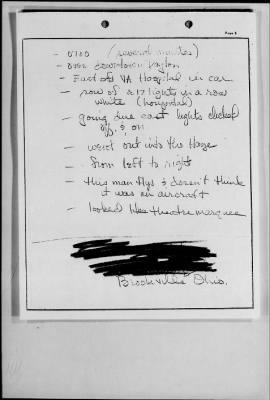 Page 8
- 0700 (several minutes)
- over downtown Dayton
- East of VA Hospital in car
- row of 17 lights in a row
white (horizontal)
- going due east lights clicked
off & on
- went out into the Haze
- from left to right
- this man flys & doesn't think
it was an aircraft
- looked like theatre marquee
Brookville Ohio.